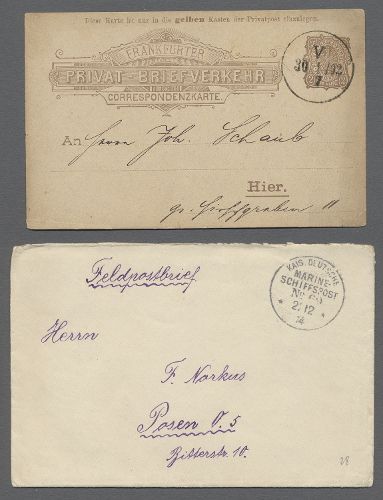 Diese Karte ist nur in die gelben Kasten der Privatpost einzulegen.
FRANKFURTER
PRIVAT-BRIEFVERKEHR
CORRESPONDENZKARTE.
V
30 1 92
7
An Herrn Joh. Schaub
Hier.
gr. Hirschgraben 11
Feldpostbrief
KAIS. DEUTSCHE
MARINE-
SCHIFFSPOST
No
* 2/12 *
14
Herrn
F. Norkus
Posen O. 5
Ritterstr. 10.
28